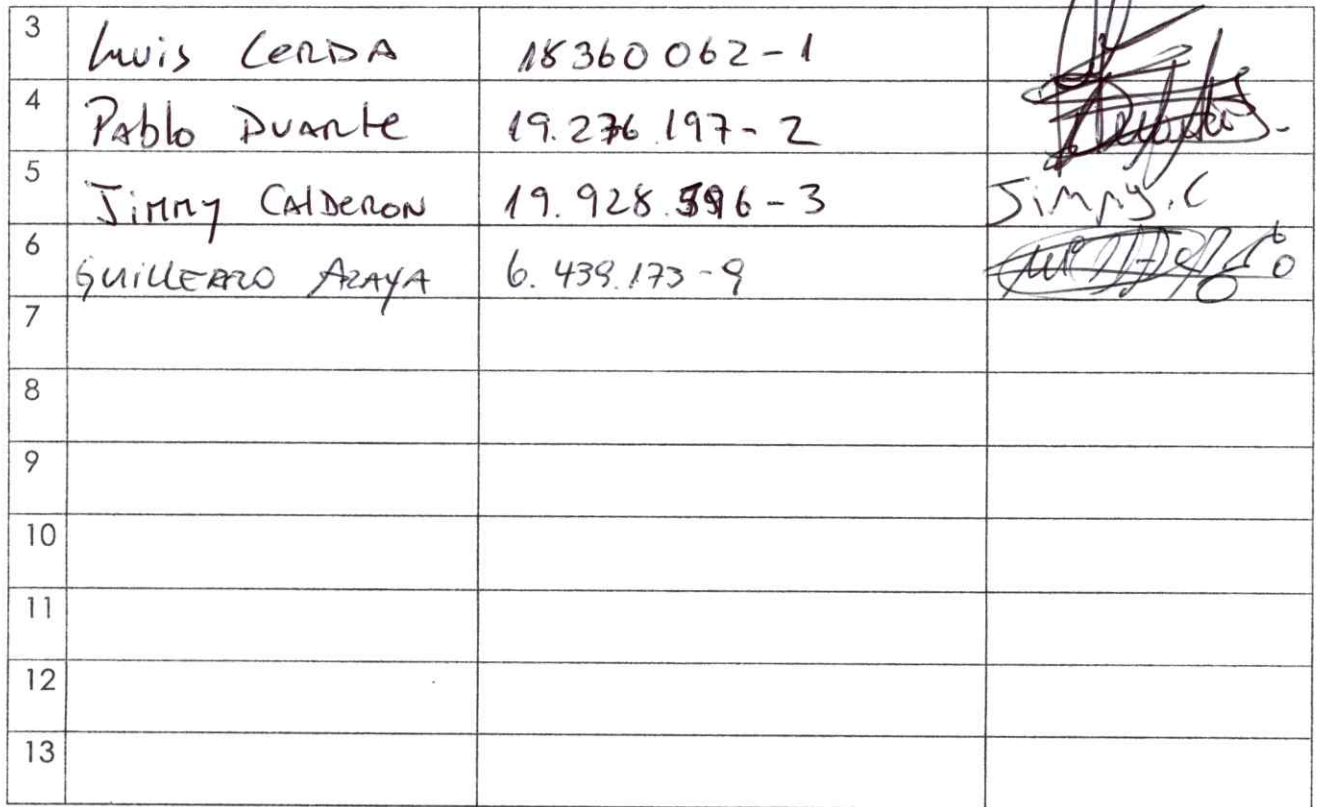 3 Luis Cerda 18360062-1
4 Pablo Duarte 19.276.197-2
5 Jimmy Calderon 19.928.596-3 Jimmy.C
6 Guillermo Araya 6.439.173-9
7
8
9
10
11
12
13